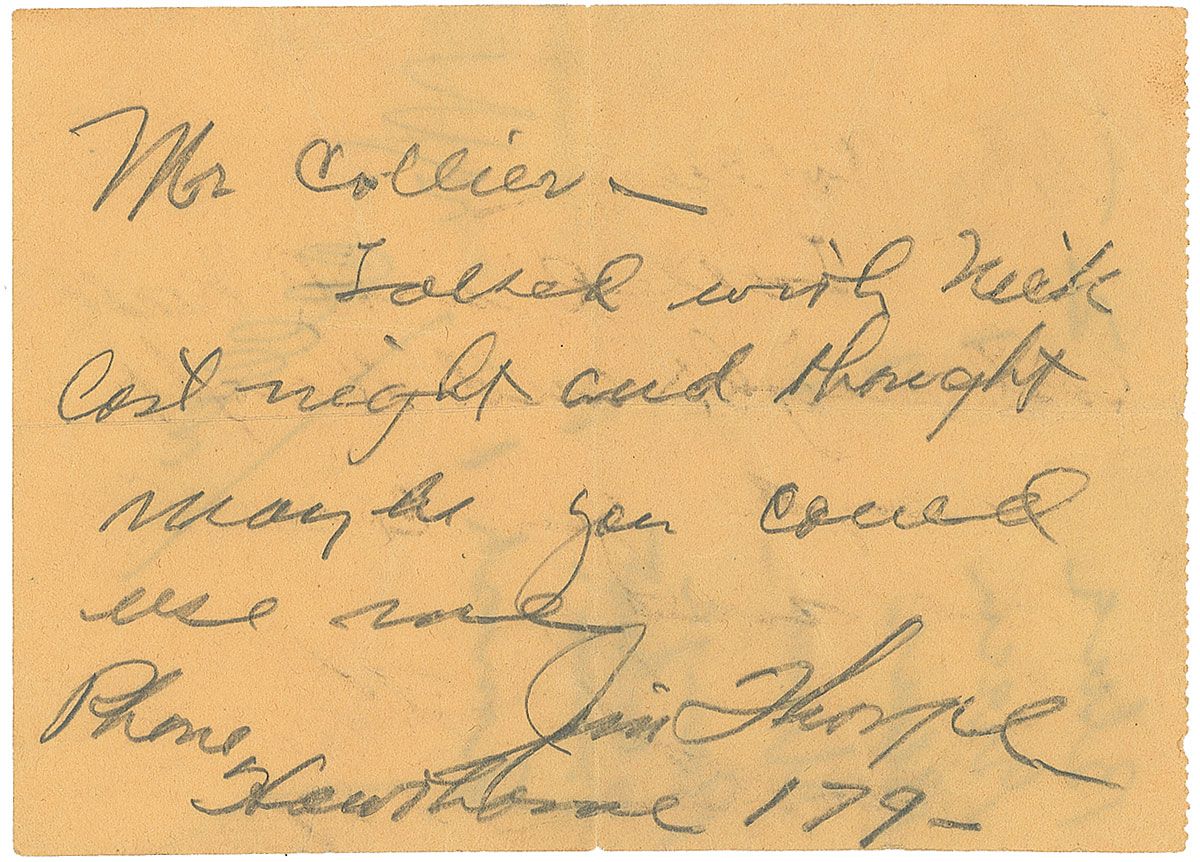 Mr Collier —
Talked with Nick
last night and thought
maybe you could
use me
Jim Thorpe
Phone
Hawthorne 179 —